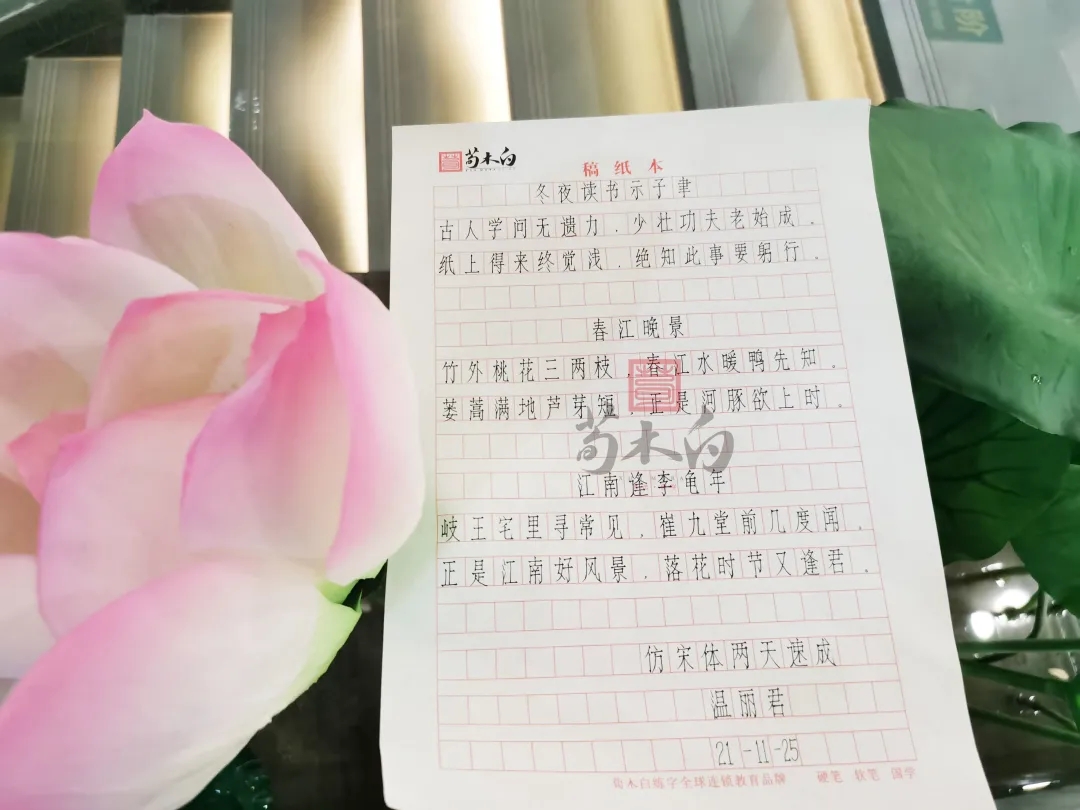 荀木白
稿纸本
冬夜读书示子聿
古人学问无遗力，少壮功夫老始成。
纸上得来终觉浅，绝知此事要躬行。
春江晚景
竹外桃花三两枝，春江水暖鸭先知。
蒌蒿满地芦芽短，正是河豚欲上时。
荀木白
江南逢李龟年
岐王宅里寻常见，崔九堂前几度闻。
正是江南好风景，落花时节又逢君。
仿宋体两天速成
温丽君
21-11-25
荀木白练字全球连锁教育品牌 硬笔 软笔 国学